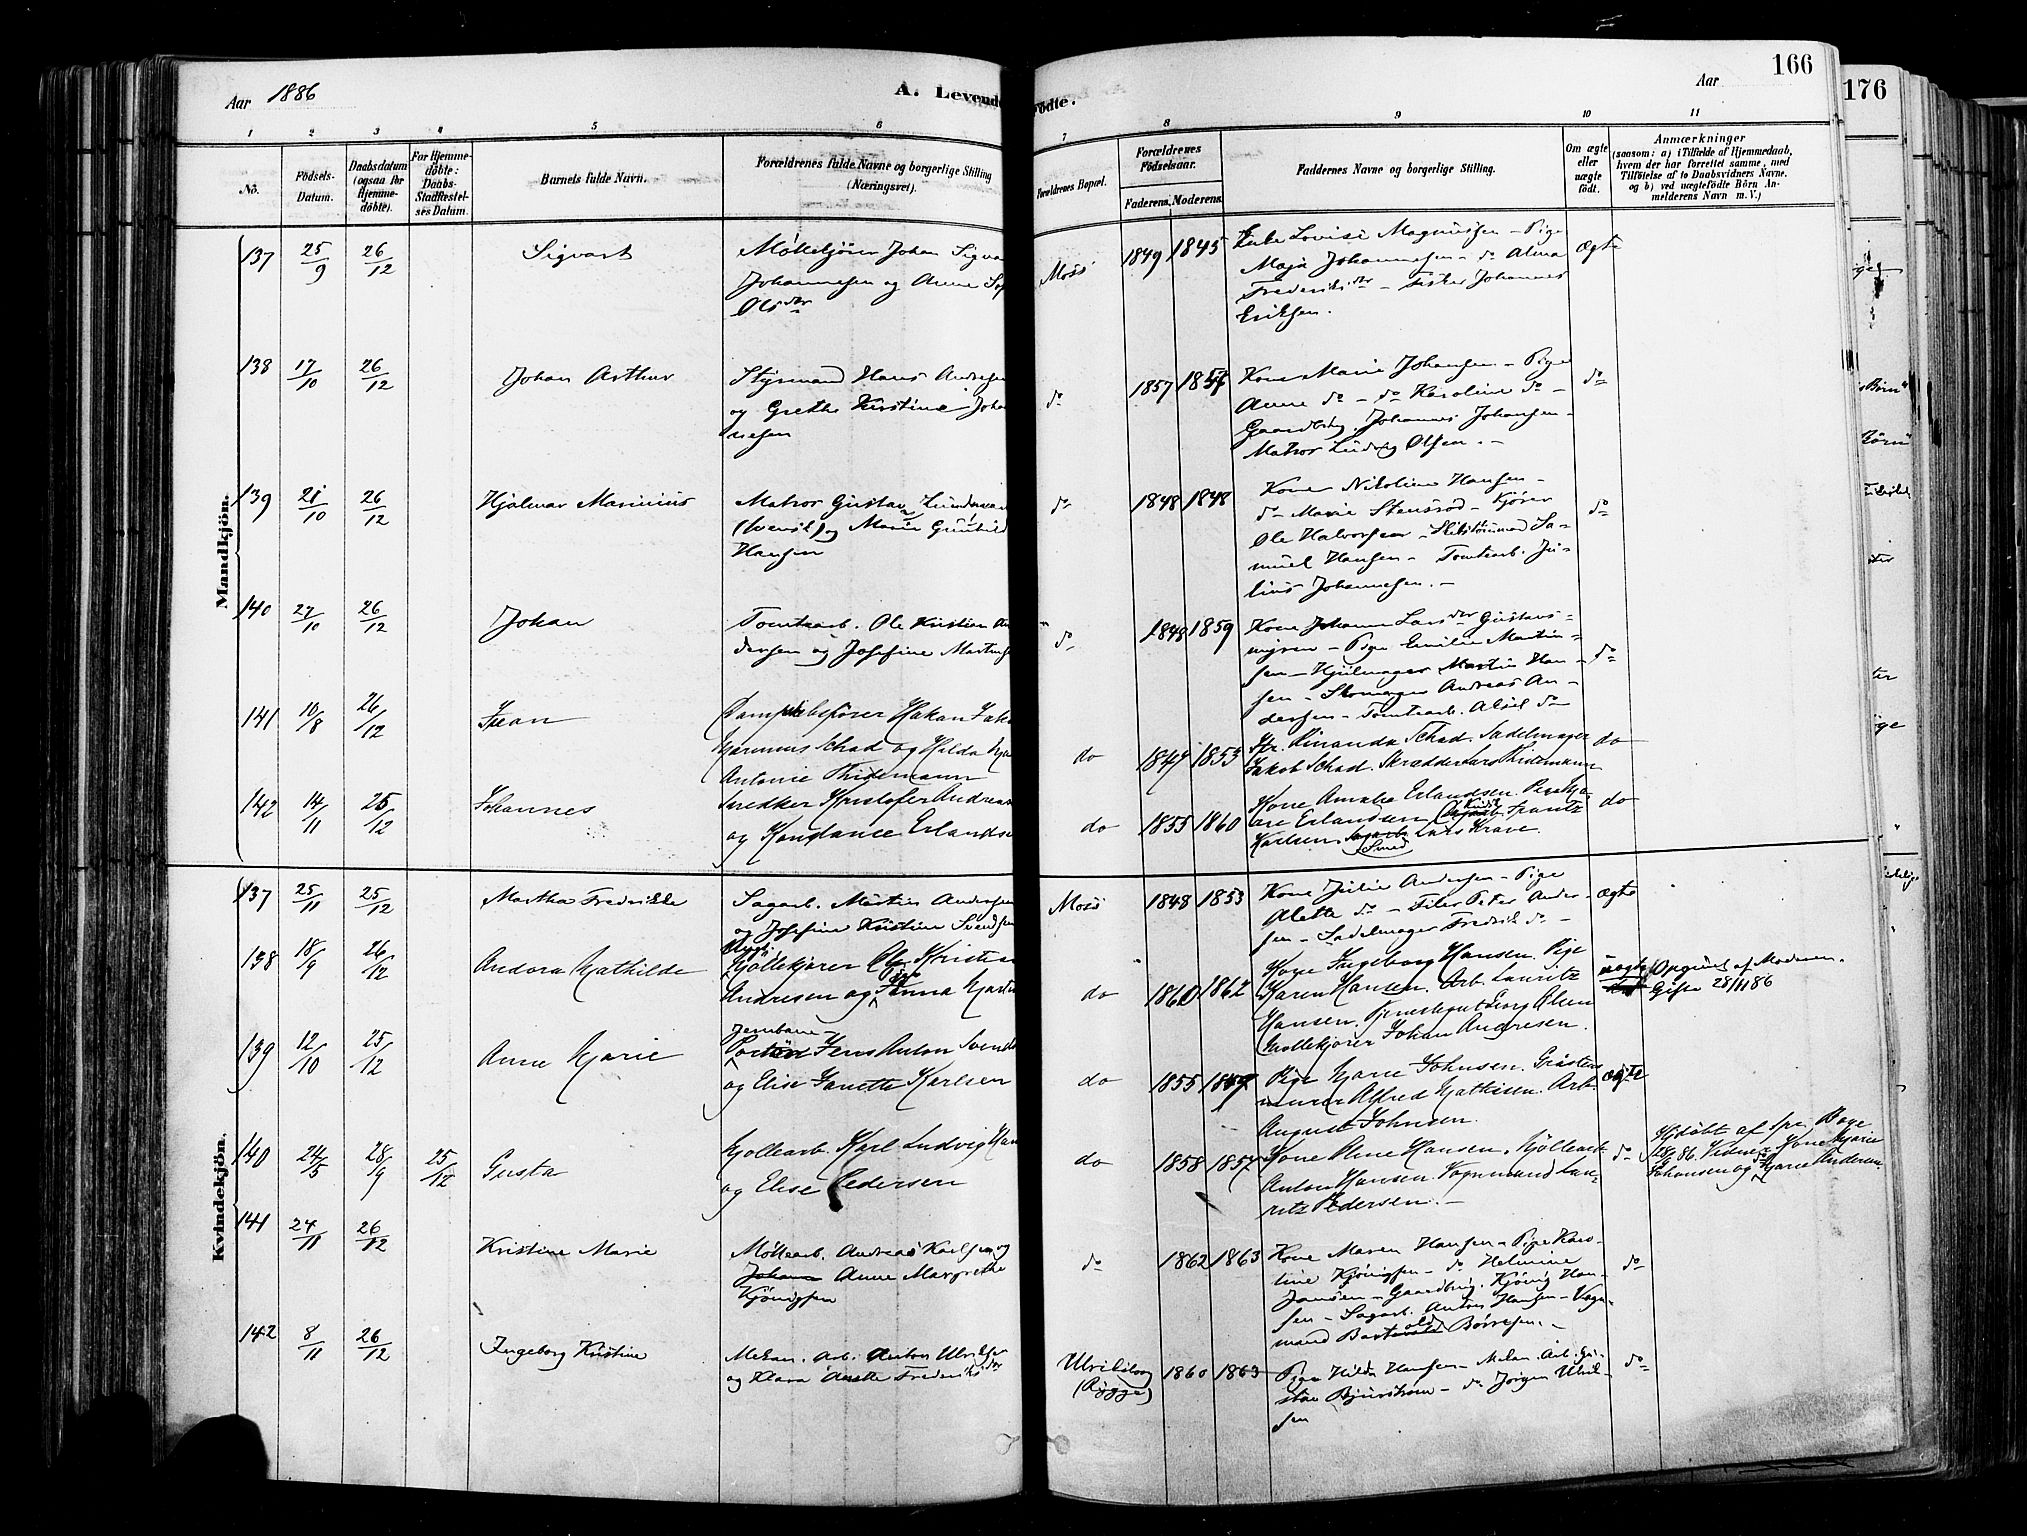 Aar 1886
A. Levende
Fødte.
Aar
166
176
1 2 3 4 5 6 7 8 9 10 11
No.
Fødsels-
Datum.
Daabsdatum
(ogsaa for
Hjemme-
døbte).
For Hjemme-
døbte:
Daabs-
Stadfæstel-
ses Datum.
Barnets fulde Navn.
Forældrenes fulde Navne og borgerlige Stilling
(Næringsvei).
Forældrenes Bopæl.
Forældrenes
Fødselsaar.
Faderens. Moderens.
Faddernes Navne og borgerlige Stilling.
Om ægte
eller
uægte
født.
Anmærkninger
(saasom: a) i Tilfælde af Hjemmedaab,
hvem der har forrettet samme, med
Tilføielse af to Daabsvidners Navne.
og b) ved uægtefødte Børn An-
melderens Navn m. V.)
Mandkjøn.
137 25/9 26/12 Sigvart
Møllekjører Johan Sigva
Johannesen og Anne Sof
Olsdtr
Moss 1849 1845
Enke Lovise Magnussen – Pige
Maja Johannesen – do Alma
Frederiksdtr – Fisker Johannes
Eriksen.
Ægte
138 17/10 26/12 Johan Arthur
Styrmand Hans Andresen
og Grethe Kirstine Joha
nesen
do 1857
Kone Marie Johansen – Pige
Anne do – do Karoline do –
Gaardbrg. Johannes Johansen –
Matros Ludvig Olsen. –
do
139 21/10 26/12 Hjalmar Marinius
Matros Gustav
(svensk) og Marie Gunhild
Hansen
do 1848 1848
Kone Nikoline Hansen –
do Marie Stensrød – Kjører
Ole Halvorsen – Sa-
muel Hansen – Tomtearb. Ju-
lius Johannesen. –
do
140 27/10 26/12 Johan
Tomtearb. Ole Kristian An
dersen og Josefine Martins
do 1848 1859
Kone Johanne Larsdtr Gustavs-
– Pige Emilie Martin-
sen – Hjulmager Martin Han-
sen – Skomager Andreas An-
dersen – Tomtearb. Aksel do
do
141 10/8 26/12 Ivan
Dampskibsfører Hakan Jak
Marinius Schad og Hilda Ma
Antonie Thidemann
do 1847 1853
Fr. Rinanda Schad. Sadelmager
Jakob Schad. Skrædder Lars Thidemann
do
142 14/11 25/12 Johannes
Snedker Kristofer Andreas
og Konstance Erlands
do 1855 1860
Kone Amalie Erlandsen. Pige Ma-
rie Erlandsen. Frantz
Karlsen. Smed Lars Krave.
do
Kvindekjøn.
137 25/11 25/12 Martha Fredrikke
Sagarb. Martin Andersen
og Josefine Kristine Svendsen
Moss 1848 1853
Kone Julie Andersen – Pige
Alette do – Peter Ander-
sen – Sadelmager Fredrik do –
Ægte
138 18/9 26/12 Andora Mathilde
Møllekjører Ole Kristian
Andresen og Pige Anna Marti
do 1860 1862
Kone Ingeborg Hansen. Pige
Karen Hansen. Arb. Lauritz
Hansen. Tjenestegut Georg Olsen
Møllekjører Johan Andresen.
uægte
Opgivet af Moderen.
Gifte 28/11 86
139 12/10 25/12 Anne Marie
Jernbane-
Jens Anton Svends
og Elise Janette Karlsen
do 1855
Pige Marie Johnsen. Gråstens
murer Alfred Mathisen. Arb.
August Johnsen.
ægte
140 24/5 28/9 25/12 Gusta
Møllearb Karl Ludvig Han
og Elise Pedersen
do 1858 1857
Kone Oline Hansen. Møllearb
Anton Hansen. Vognmand Lau-
ritz Pedersen. –
do
Hjdøbt af Spr. Boge
28/9 86. Vidner: Kone Marie
Johansen og do Marie Andersen
141 24/11 26/12 Kristine Marie
Møllearb. Andreas Karlsen og
Johan Anne Margrethe
Kjønigsen
do 1862 1863
Kone Maren Hansen – Pige Karo-
line Kjønigsen – do Helmine
Jansen – Gaardbrg. Kjønig Han-
sen – Sagarb. Anton Hansen – Vogn-
mand Børresen. –
do
142 8/11 26/12 Ingeborg Kristine
Mekan. Arb. Anton Ulriksen
og Klara Anette Frederiksdtr
Ulriksborg
(Rygge)
1860 1863
Pige Hilda Hansen – Mekan. Arb. Gu-
stav Bjurstrøm – do Jørgen Ulrik-
sen
do